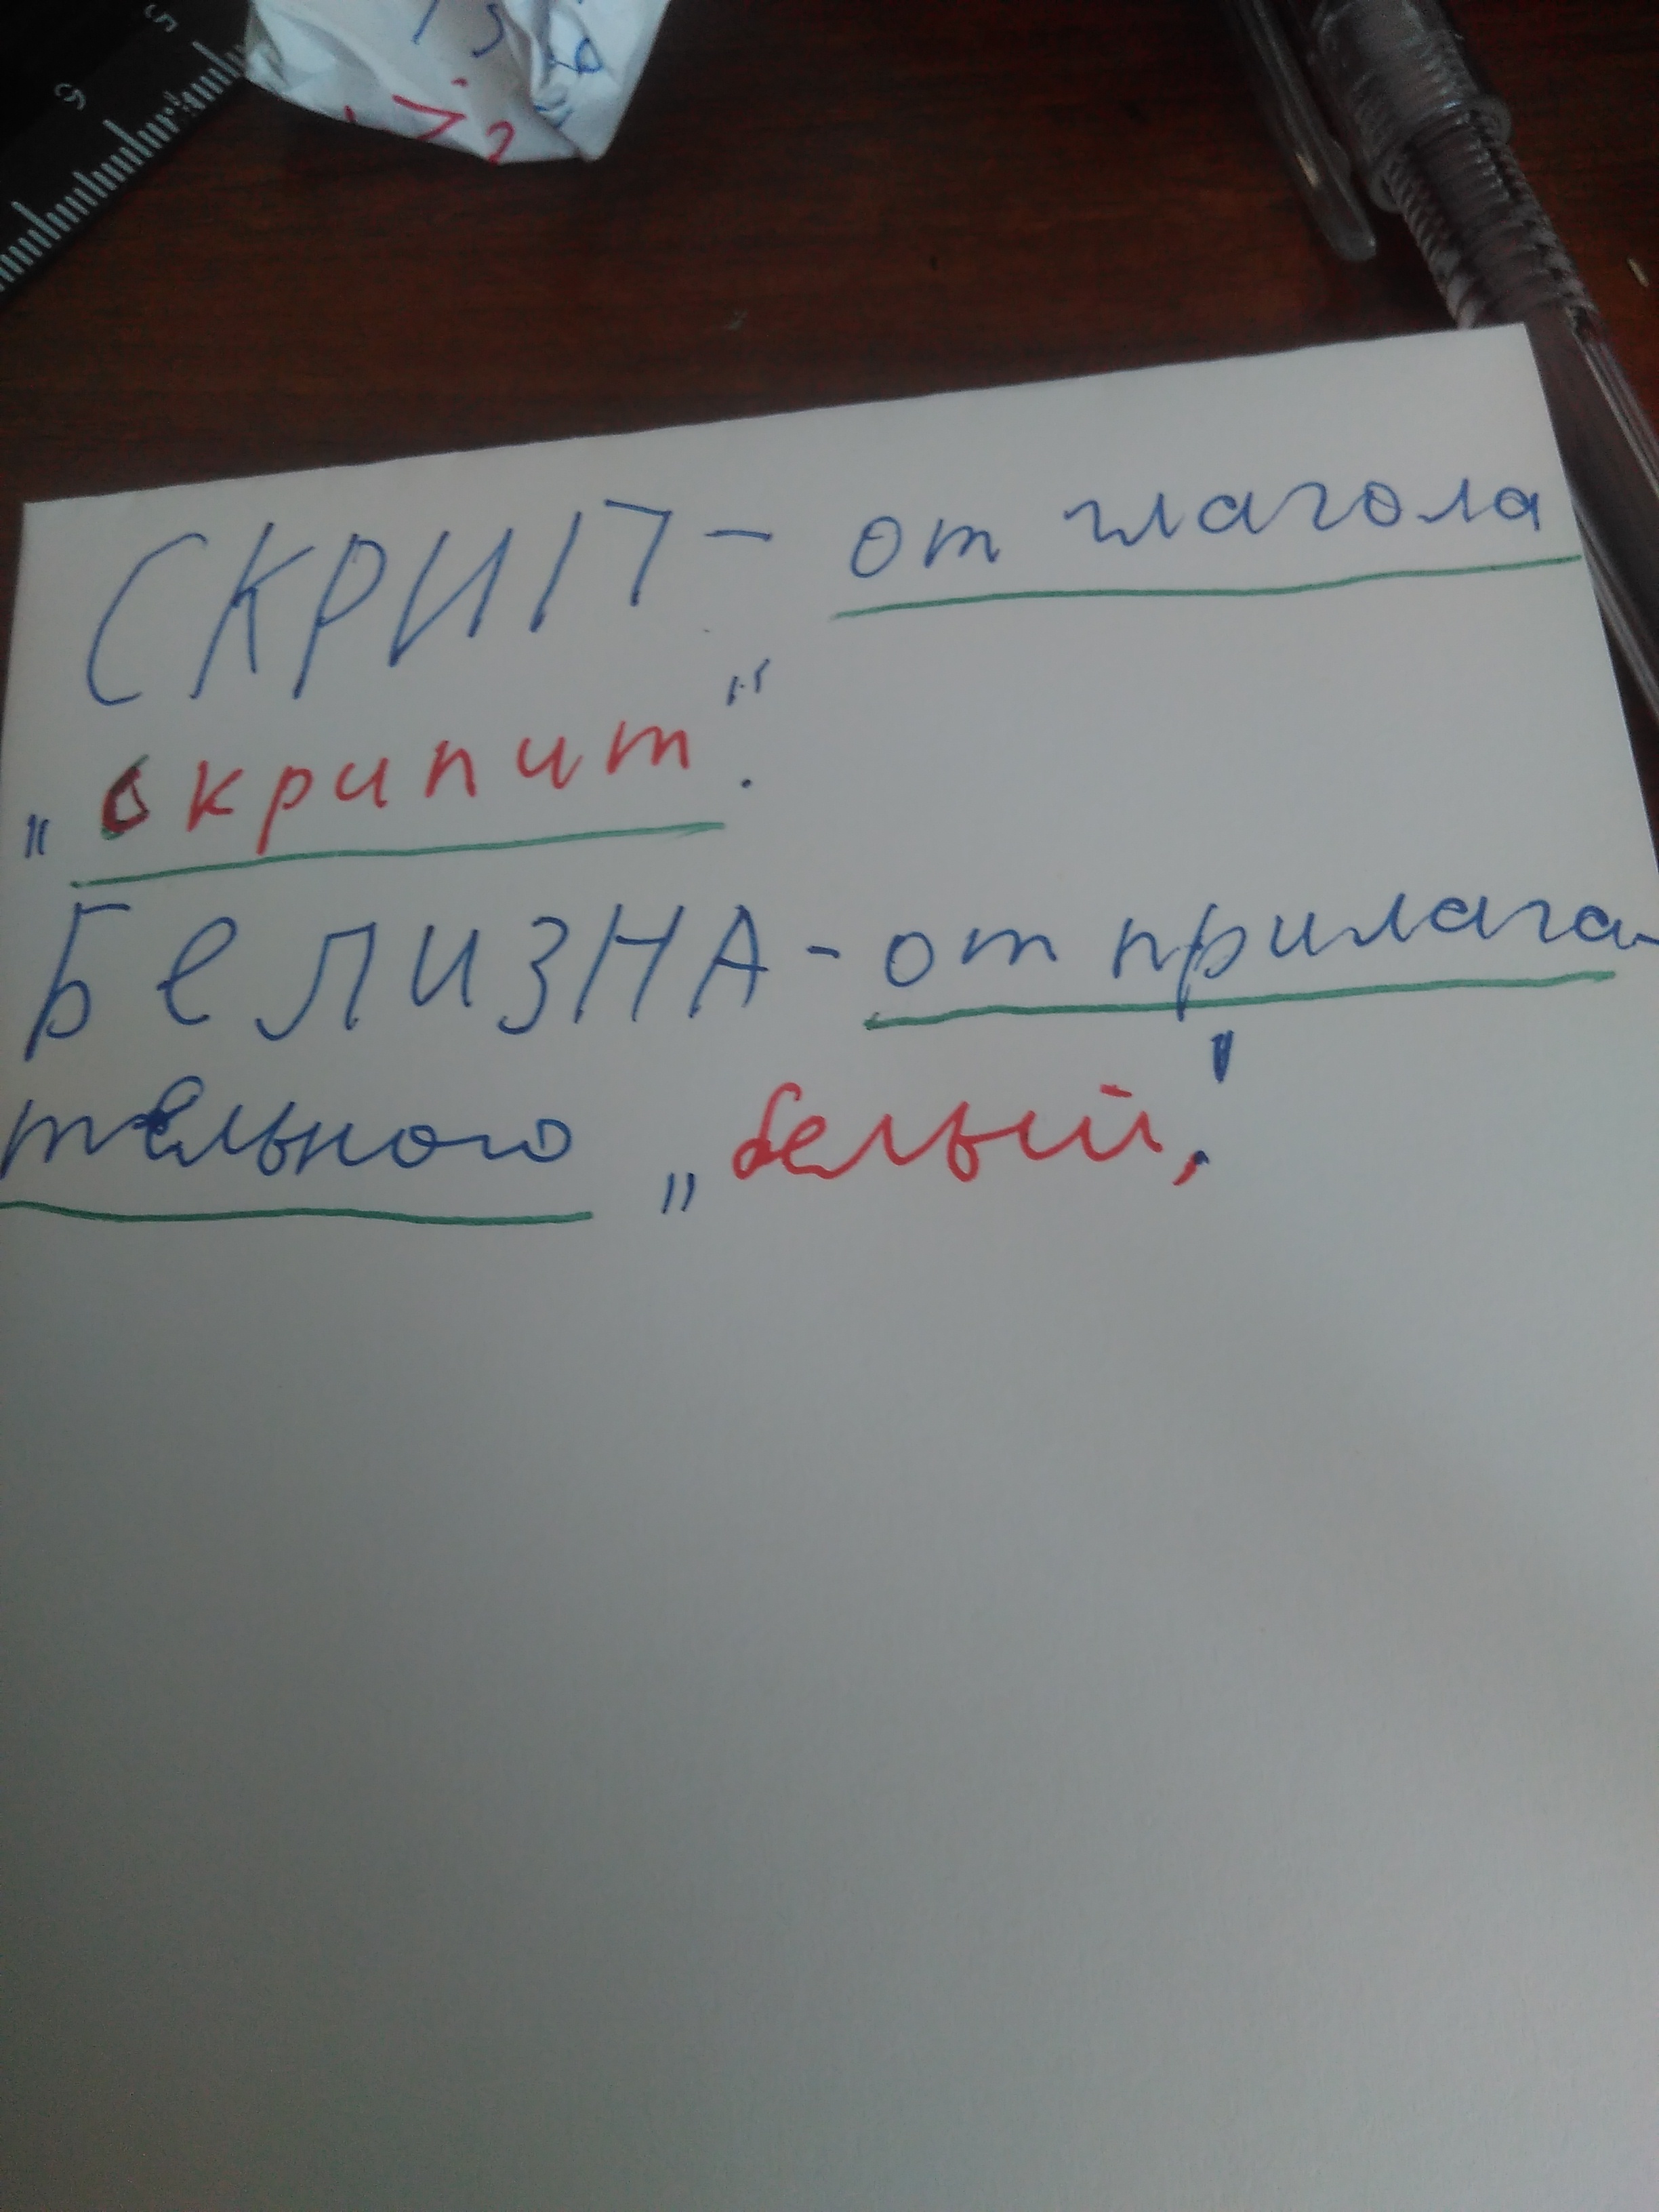 СКРИП - от глагола
„скрипит".
БеЛИЗНА - от прилага-
тельного „белый".